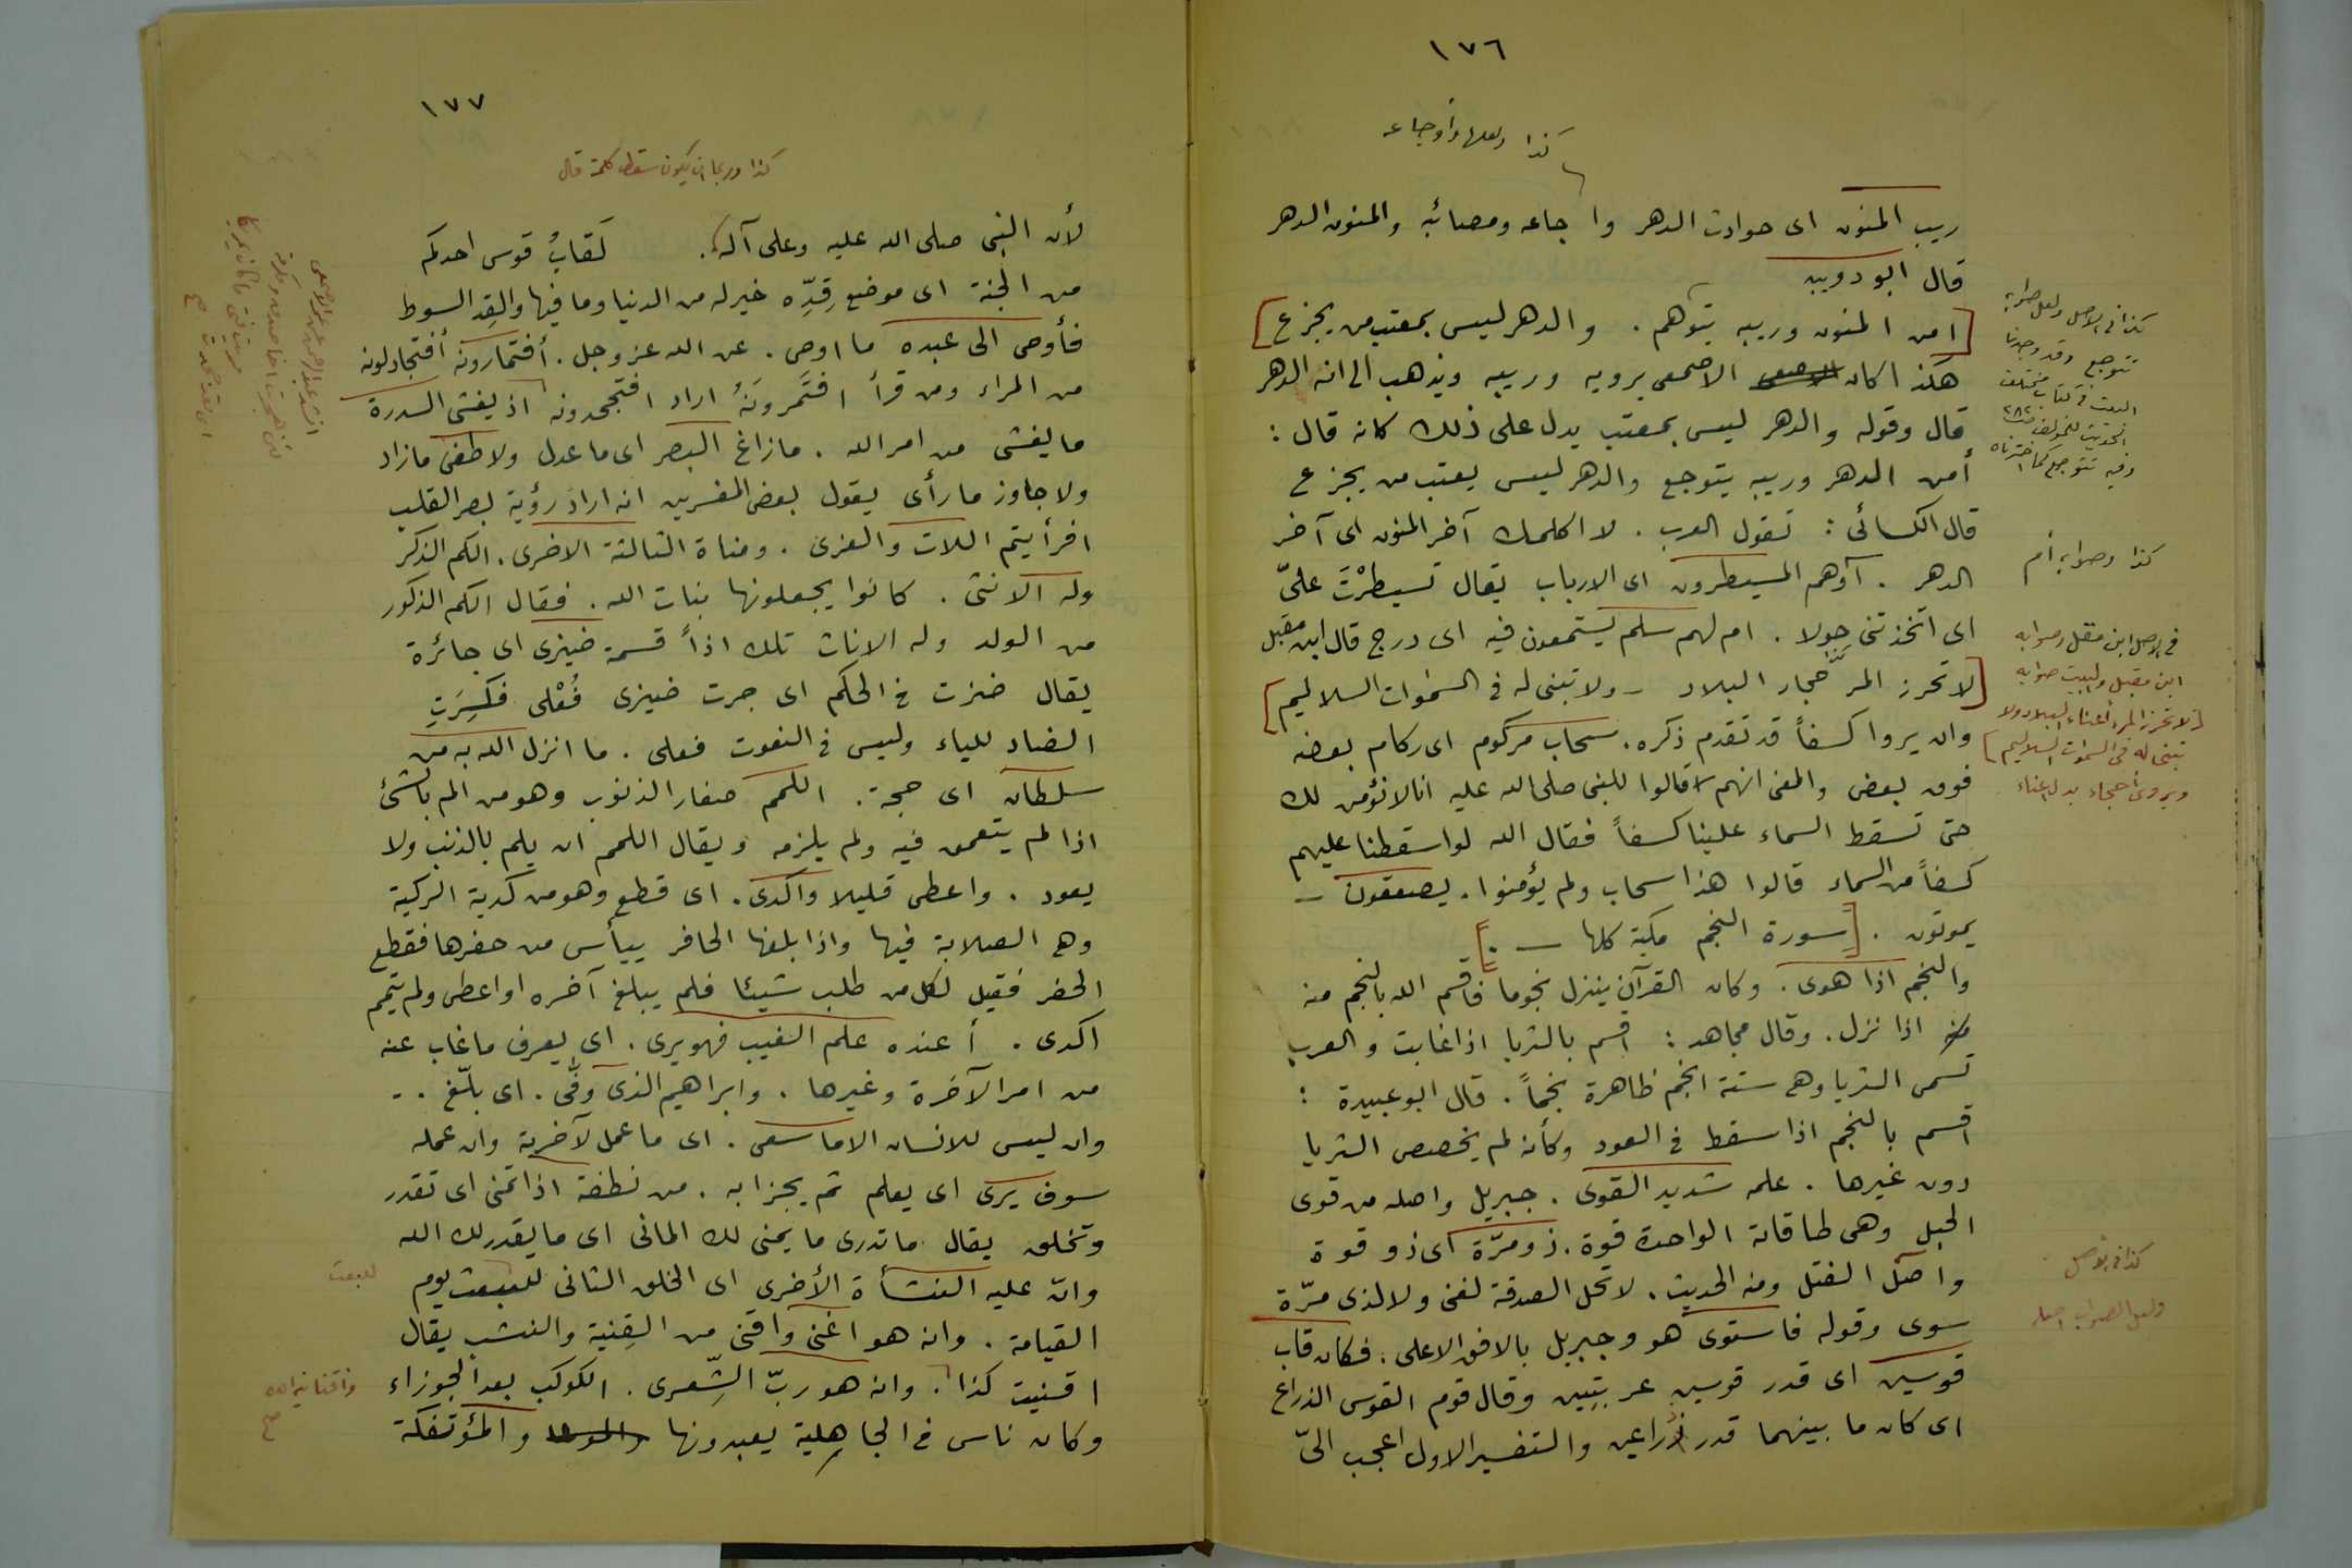 ١٧٦
كذا ولعلها وأوجاعه
ريب المنون اى حوادث الدهر وا جاعه ومصائبه والمنون الدهر
قال ابو دويب
[امن المنون وريبه يتوهم . والدهر ليس بمعتب من يجزع]
هكذا كان الاصمعى يرويه وريبه ويذهب الى انه الدهر
قال وقوله والدهر ليس بمعتب يدل على ذلك كانه قال :
أمن الدهر وريبه يتوجع والدهر ليس يعتب من يجزع
قال الكسائى : تقول العرب . لا اكلمك آخر المنون اى آخر
الدهر . آوهم المسيطرون اى الارباب يقال تسيطرْتَ علىّ
اى اتخذتنى خولا . ام لهم سلم يستمعون فيه اى درج قال ابن مقبل
[لا تحرز المرَّ حجار البلاد - ولا تبنى له فى السموات السلاليم]
وان يروا كسفاً قد تقدم ذكره . سحاب مركوم اى ركام بعضه
فوق بعض والمعنى انهم لا قالوا للنبى صلى الله عليه انا لا نؤمن لك
حتى تسقط السماء علينا كسفاً فقال الله لو اسقطنا عليهم
كسفاً من السماء قالوا هذا سحاب ولم يؤمنوا . يصعقون -
يموتون . [سورة النجم مكية كلها - .]
والنجم اذا هوى . وكان القرآن ينزل نجوما فاقسم الله بالنجم منه
اذا نزل . وقال مجاهد : اقسم بالثريا اذا غابت والعرب
تسمى الثريا وهى ستة انجم ظاهرة نجماً . قال ابو عبيدة :
اقسم بالنجم اذا سقط فى الغور وكأنه لم يخصص الثريا
دون غيرها . علمه شديد القوى . جبريل واصله من قوى
الحبل وهى طاقاته الواحدة قوة . ذو مرّة اى ذو قوة
واصل الفتل ومنه الحديث . لا تحل الصدقة لغنى ولا لذى مرّة
سوى وقوله فاستوى هو وجبريل بالافق الاعلى . فكان قاب
قوسين اى قدر قوسين عربيتين وقال قوم القوس الذراع
اى كان ما بينهما قدر ذراعين والتفسير الاول اعجب الىّ
كذا فى الاصل ولعل صوابه
تتوجع وقد وجدنا
البيت فى كتاب مختلف
الحديث للمؤلف ص ٢٨٢
وفيه تتوجع كما اخترناه
كذا وصوابه أم
فى الاصل ابن مقل وصوابه
ابن مقبل والبيت صوابه
[لا تحرز المرء أعناء البلاد ولا
تبنى له فى السموات السلاليم]
ويروى أحجاء بدل اعناء
كذا فى الأصل
ولعل الصواب اصله
١٧٧
كذا وربما ان يكون سقط كلمة قال
لأن النبى صلى الله عليه وعلى آله . لَقابُ قوس احدكم
من الجنة اى موضع قِدِّه خير له من الدنيا وما فيها والقِد السوط
فأوحى الى عبده ما اوحى . عن الله عز وجل . أفتمارونه أفتجادلونه
من المراء ومن قرأ افتَمرونَهُ اراد افتجحدونه اذ يغشى السدرة
ما يغشى من امر الله . ما زاغ البصر اى ما عدل ولا طغى ما زاد
ولا جاوز ما رأى يقول بعض المفسرين انه اراد رؤية بصر القلب
افرأيتم اللات والعزى . ومناة الثالثة الاخرى . الكم الذكر
وله الانثى . كانوا يجعلونها بنات الله . فقال الكم الذكور
من الولد وله الاناث تلك اذاً قسمة ضيزى اى جائرة
يقال ضزت فى الحكم اى جرت ضيزى فُعْلى فكُسِرَتِ
الضاد للياء وليس فى النعوت فعلى . ما انزل الله به من
سلطان اى حجة . اللمم صغار الذنوب وهو من الم بالشئ
اذا لم يتعمق فيه ولم يلزمه ويقال اللمم ان يلم بالذنب ولا
يعود . واعطى قليلا واكدى . اى قطع وهو من كدية الركية
وهى الصلابة فيها واذا بلغها الحافر ييأس من حفرها فقطع
الحفر فقيل لكل من طلب شيئا فلم يبلغ آخره او اعطى ولم يتمم
اكدى . أ عنده علم الغيب فهو يرى . اى يعرف ما غاب عنه
من امر الآخرة وغيرها . وابراهيم الذى وفّى . اى بلّغ . -
وان ليس للانسان الا ما سعى . اى ما عمل لآخرية وان عمله
سوف يرى اى يعلم ثم يجزا به . من نطفة اذا تمنى اى تقدر
وتخلق يقال ما تدرى ما يمنى لك المانى اى ما يقدر لك الله
وانّ عليه النشأة الأخرى اى الخلق الثانى للبعث يوم
القيامة . وانه هو اغنى واقنى من القِنية والنشب يقال
اقنيت كذا . وانه هو ربّ الشِّعرى . الكوكب بعد الجوزاء
وكان ناس فى الجاهلية يعبدونها والمؤتفكة
للبعث
واقنانيه الله
صح